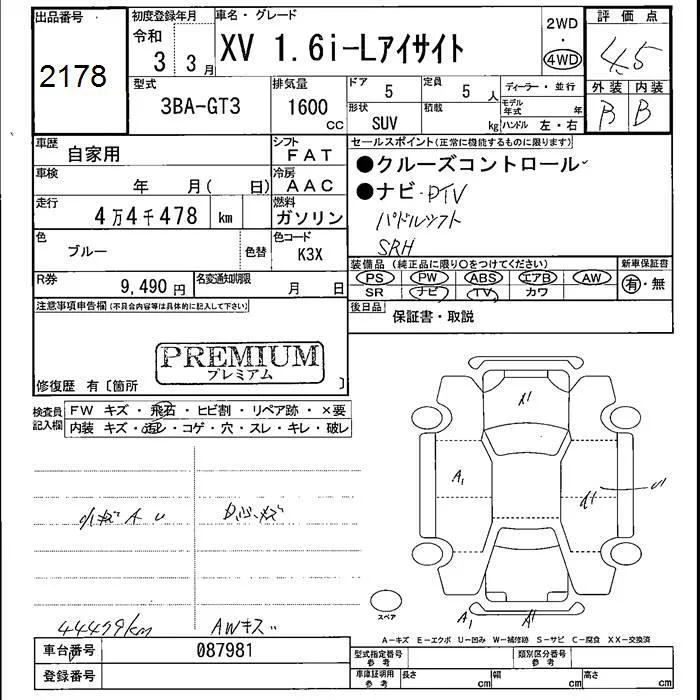 出品番号
2178
初度登録年月
令和
3年 3月
車名・グレード
XV 1.6i-Lアイサイト
2WD
・
4WD
評価点
4.5
型式
3BA-GT3
排気量
1600
cc
ドア
5
定員
5人
形状
SUV
積載
kg
ディーラー・並行
モデル年式 年
ハンドル 左・右
外装 内装
B B
車歴
自家用
シフト
FAT
車検
年 月( 日)
冷房
AAC
走行
4万4千478 km
燃料
ガソリン
色
ブルー
色替
色コード
K3X
R券
9,490円
名変通知期限
月 日
セールスポイント(正常に機能するものに限ります)
●クルーズコントロール
●ナビ・DTV
パドルシフト
SRH
装備品(純正品に限り○をつけてください)
PS PW ABS エアB AW
SR ナビ TV カワ
新車保証書
有・無
後日品
保証書・取説
注意事項申告欄(不具合内容等は具体的に記入して下さい)
PREMIUM
プレミアム
修復歴 有〔箇所 〕
検査員
記入欄
FW キズ・飛石・ヒビ割・リペア跡・×要
内装 キズ・汚レ・コゲ・穴・スレ・キレ・破レ
小キズ A U
44479km
AWキズ
A1
A1
A1
スペア
A-キズ E-エクボ U-凹み W-補修跡 S-サビ C-腐食 XX-交換済
車台番号
087981
登録番号
型式指定番号
参考
類別区分番号
参考
車庫証明用
参考
長さ cm 幅 cm 高さ cm